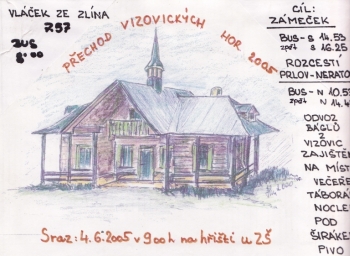 VLÁČEK ZE ZLÍNA
7.57
BUS
8:00
PŘECHOD VIZOVICKÝCH HOR 2005
CÍL:
ZÁMEČEK
BUS-S 14.53
zpět S 16.25
ROZCESTÍ
PRLOV-NERATO
BUS-N 10.5
zpět N 14.4
ODVOZ
BÁGLŮ
Z
VIZOVIC
ZAJIŠTĚ
NA MÍST
VEČEŘE
TÁBORÁ
NOCLE
POD
ŠIRÁKE
PIVO
Sraz: 4.6.2005 v 9.00 h na hřišti u ZŠ